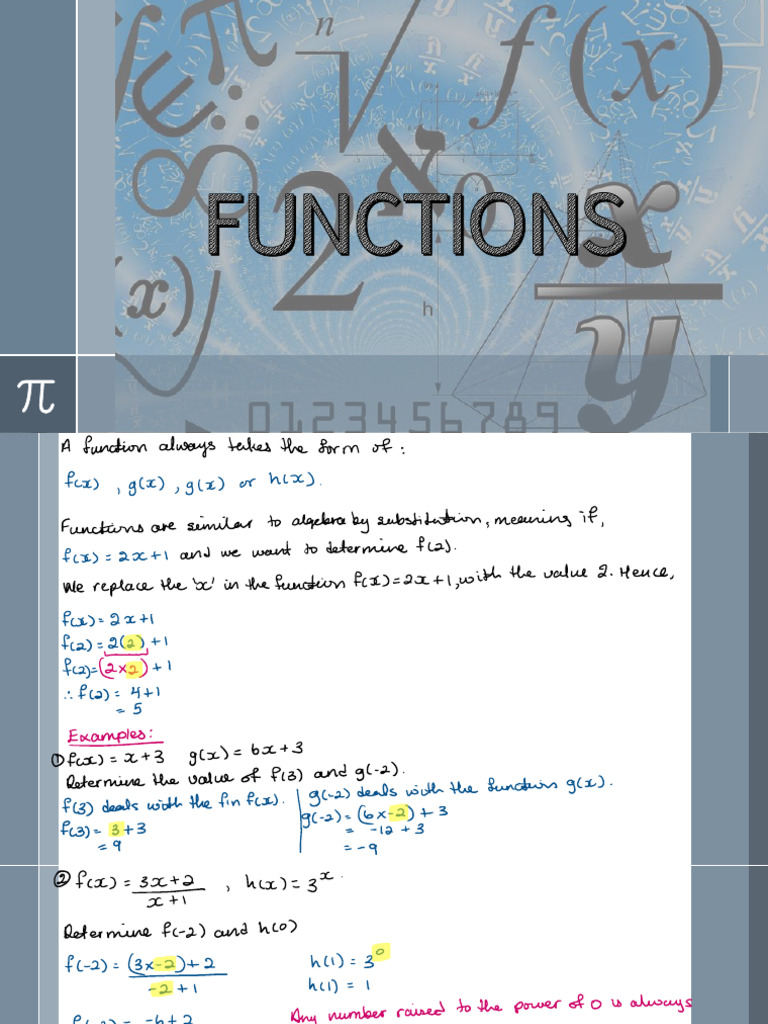 n
f(x)
π
2
x
y
(x)
h
FUNCTIONS
π
0123456789
A function always takes the form of :
f(x) , g(x) , g(x) or h(x).
Functions are similar to algebra by substitution, meaning if,
f(x) = 2x+1 and we want to determine f(2).
We replace the 'x' in the function f(x)=2x+1, with the value 2. Hence,
f(x) = 2x+1
f(2) = 2(2)+1
f(2)=(2×2)+1
∴ f(2) = 4+1
= 5
Examples:
① f(x) = x+3 g(x) = 6x+3
Determine the value of f(3) and g(-2).
f(3) deals with the f'n f(x).
f(3) = 3+3
= 9
g(-2) deals with the function g(x).
g(-2) = (6×-2)+3
= -12+3
= -9
② f(x) = 3x+2 / x+1 , h(x) = 3ˣ.
Determine f(-2) and h(0)
f(-2) = (3×-2)+2 / -2+1
h(1) = 3⁰
h(1) = 1
Any number raised to the power of 0 is always